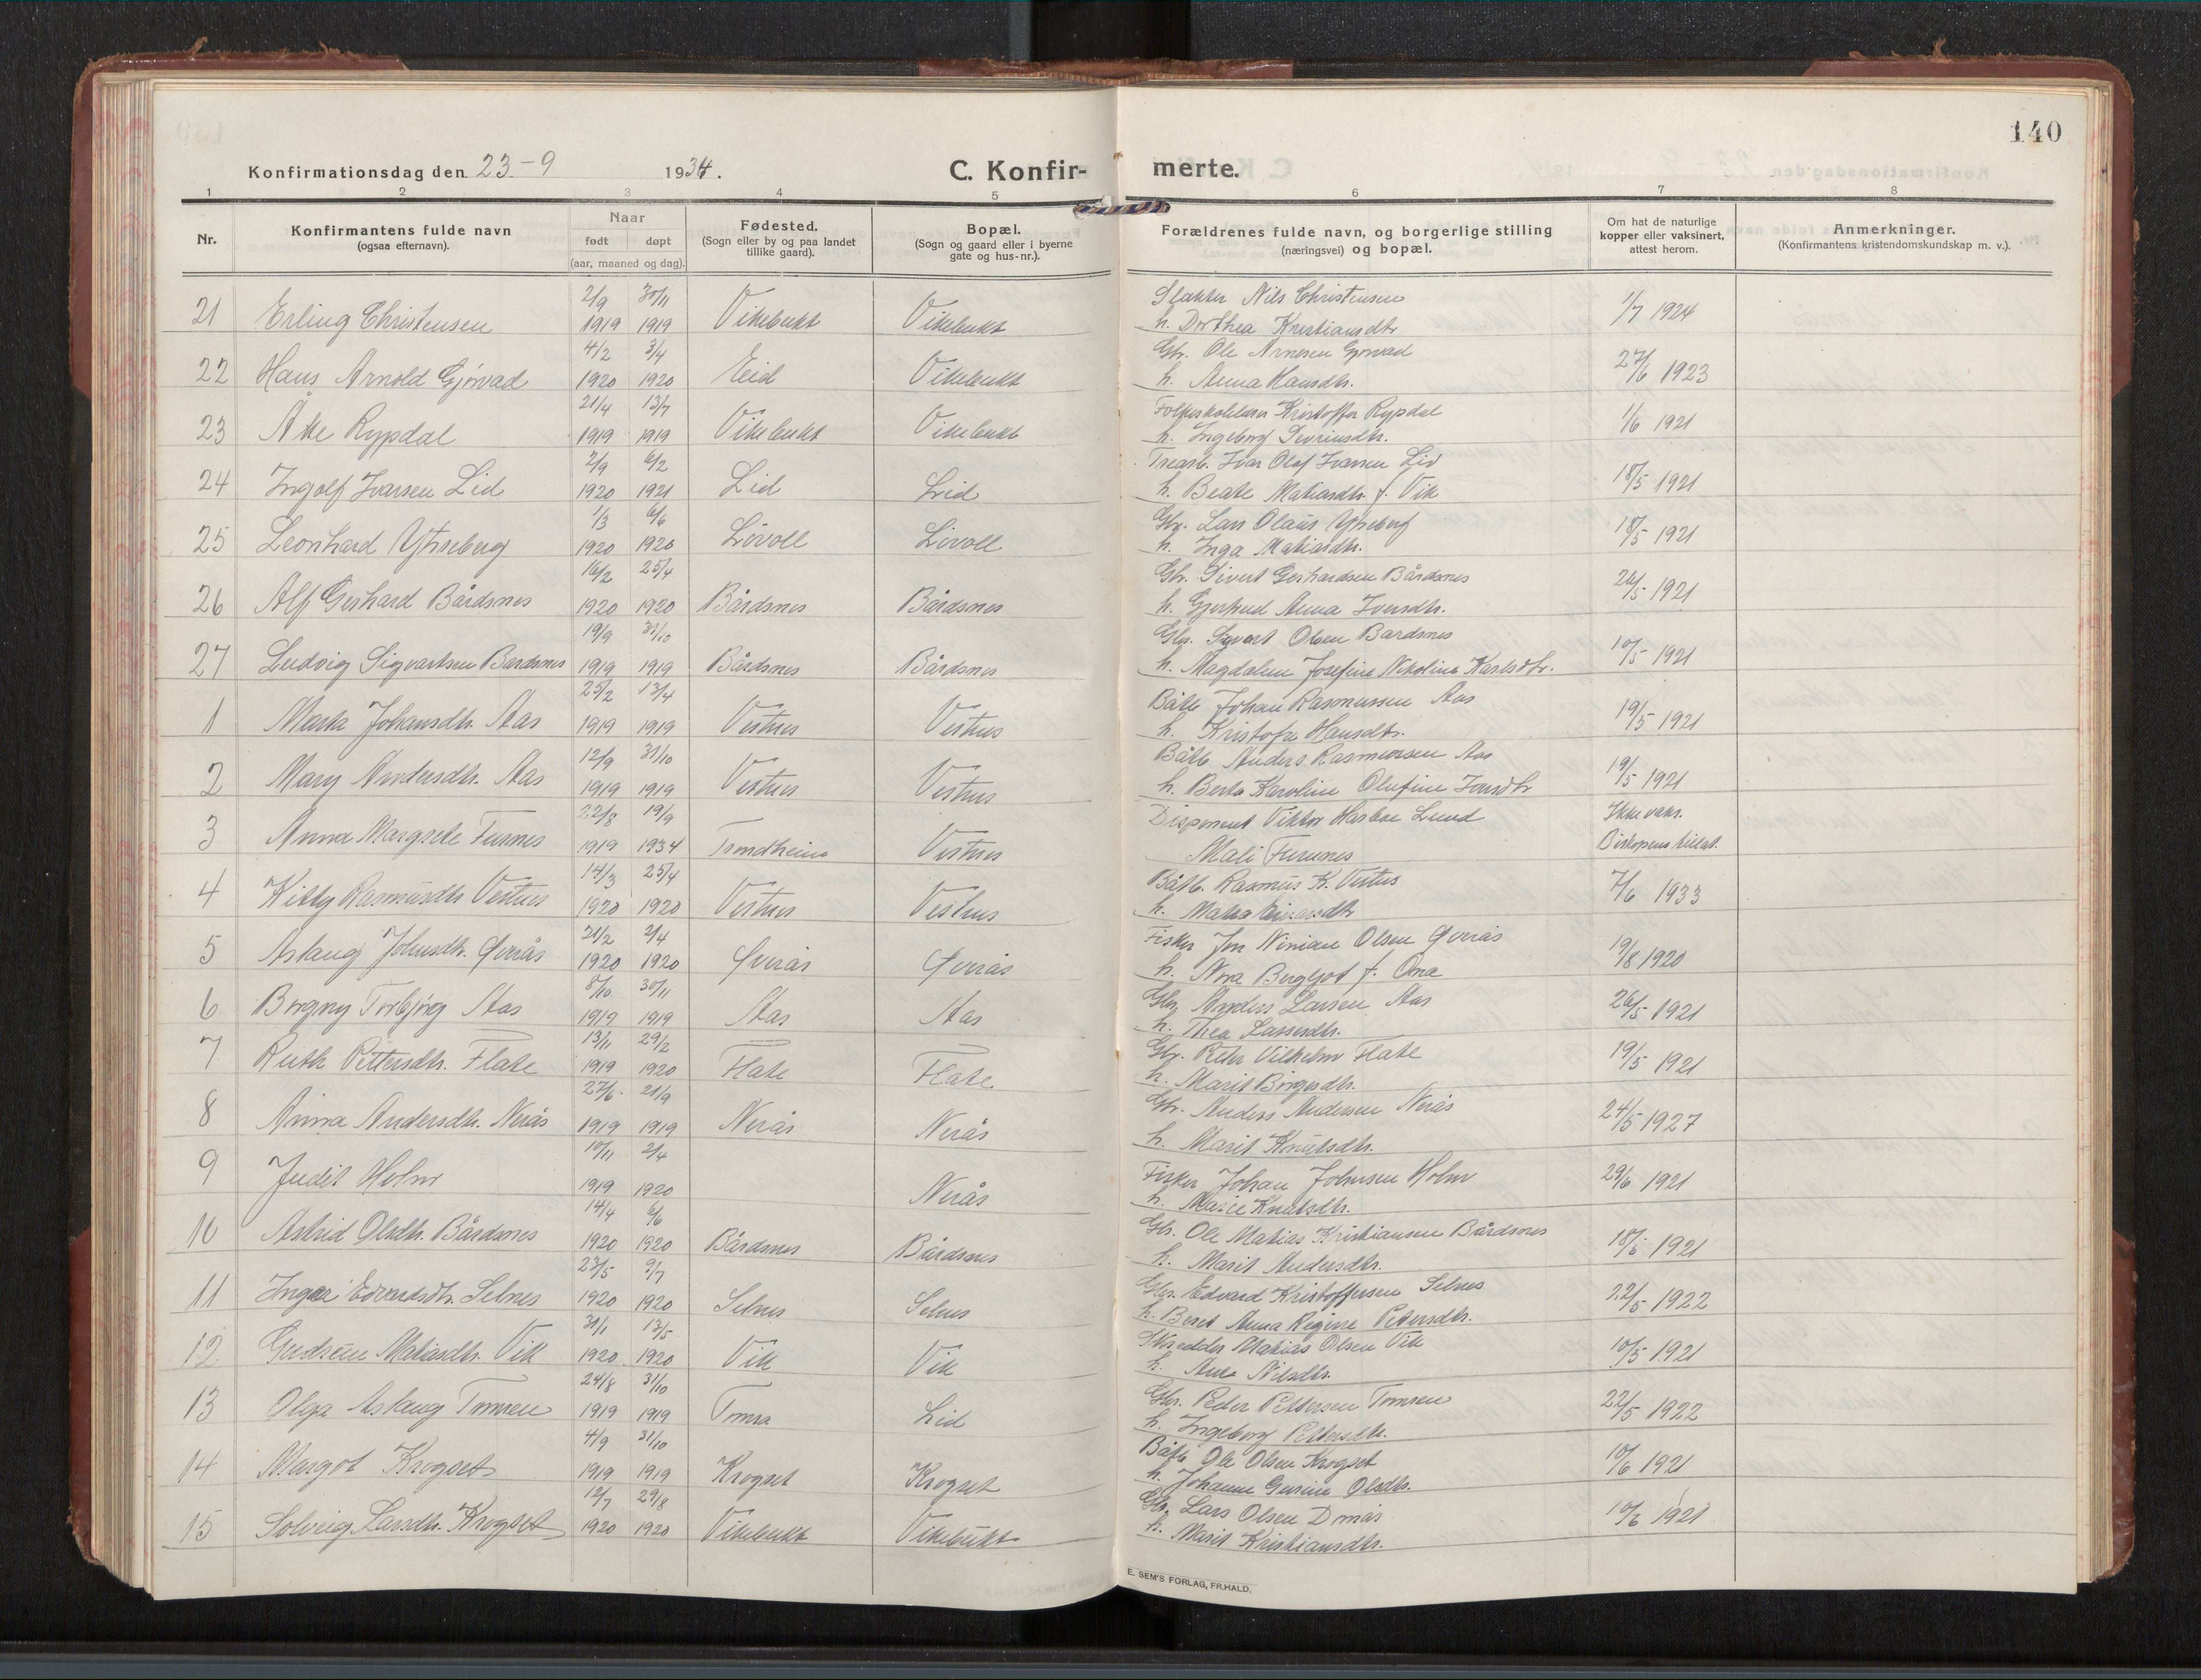 140
Konfirmationsdag den 23-9 1934.
C. Konfir-
merte.
1 2 3 4 5 6 7 8
Nr.
Konfirmantens fulde navn
(ogsaa efternavn).
Naar
født døpt
(aar, maaned og dag).
Fødested.
(Sogn eller by og paa landet
tillike gaard).
Bopæl.
(Sogn og gaard eller i byerne
gate og hus-nr.).
Forældrenes fulde navn, og borgerlige stilling
(næringsvei) og bopæl.
Om hat de naturlige
kopper eller vaksinert,
attest herom.
Anmerkninger.
(Konfirmantens kristendomskundskap m. v.).
2/9 30/11 Slakter Nils Christensen
21 Erling Christensen 1919 1919 Vikebukt Vikebukt h. Dorthea Kristiansdtr 1/7 1924
4/2 3/4 Gbr. Ole Arnesen Gjørvad
22 Hans Arnold Gjørvad 1920 1920 Eid Vikebukt h. Anna Hansdtr. 27/6 1923
21/4 13/7 Folkeskolelærer Kristoffer Rypdal
23 Åke Rypdal 1919 1919 Vikebukt Vikebukt h. Ingeborg Sevrinsdtr. 1/6 1921
2/9 6/2 Trearb. Ivar Olaf Ivarsen Lid
24 Ingolf Ivarsen Lid 1920 1921 Lid Lid h. Beate Matiasdtr. f. Vik 18/5 1921
1/3 6/6 Gbr. Lars Olaus Ytreberg
25 Leonhard Ytreberg 1920 1920 Løvoll Løvoll h. Inga Matiasdtr. 18/5 1921
16/2 25/4 Gbr. Sivert Gerhardsen Bårdsnes
26 Alf Gerhard Bårdsnes 1920 1920 Bårdsnes Bårdsnes h. Gjertrud Anna Iversdtr. 26/5 1921
19/9 31/10 Gbr. Sigvart Olsen Bardsnes
27 Ludvig Sigvartsen Bardsnes 1919 1919 Bårdsnes Bårdsnes h. Magdalene Josefine Nikoline Karlsdtr. 10/5 1921
25/2 13/4 Båtb Johan Rasmussen Aas
1 Marta Johansdtr. Aas 1919 1919 Vestnes Vestnes h. Kristofa Hansdtr. 19/5 1921
12/9 31/10 Båtb Anders Rasmussen Aas
2 Mary Andersdtr. Aas 1919 1919 Vestnes Vestnes h. Berta Karoline Olufine Ivarsdtr 19/5 1921
22/8 19/9 Disponent Viktor Harboe Lund Ikke vaks.
3 Anna Margrete Furnes 1919 1934 Trondheim Vestnes Mali Furunes Biskopens tillat.
14/3 25/4 Båtb. Rasmus K. Vestnes
4 Kitty Rasmusdtr Vestnes 1920 1920 Vestnes Vestnes h. 7/6 1933
21/2 2/4 Fisker Jon Ninian Olsen Øverås
5 Aslaug Johnsdtr. Øverås 1920 1920 Øverås Øverås h. Nora Bergljot f. Ona 19/8 1920
8/10 30/11 Gbr Anders Larsen Aas
6 Borgny Torbjørg Aas 1919 1919 Aas Aas h. Thea Lassesdtr. 26/5 1921
13/11 29/2 Gbr. Peter Vilhelm Flate
7 Ruth Pettersdtr. Flate 1919 1920 Flate Flate h. Marit Birgersdtr. 19/5 1921
27/6 21/9 Gbr. Anders Andersen Nerås
8 Anna Andersdtr. Nerås 1919 1919 Nerås Nerås h. Marit Knutsdtr. 24/5 1927
10/11 2/4 Fisker Johan Johnsen Holm
9 Judit Holm 1919 1920 Nerås h. Marie Knutsdtr. 29/6 1921
14/4 6/6 Gbr. Ole Matias Kristiansen Bårdsnes
10 Astrid Olsdtr. Bårdsnes 1920 1920 Bårdsnes Bårdsnes h. Marit Andersdtr. 18/5 1921
23/5 9/7 Gbr. Edvard Kristoffersen Selnes
11 Inger Edvardsdtr. Selnes 1920 1920 Selnes Selnes h. Beret Anna Regine Petersdtr. 22/5 1922
31/1 13/5 Skredder Matias Olsen Vik
12 Gudrun Matiasdtr. Vik 1920 1920 Vik Vik h. Ane Nilsdtr. 10/5 1921
24/8 31/10 Gbr. Peder Pettersen Tomren
13 Olga Aslaug Tomren 1919 1919 Tomra Lid h. Ingeborg Pettersdtr. 22/5 1922
4/9 31/10 Båtb. Ole Olsen Krogset
14 Margot Krogset 1919 1919 Krogset Krogset h. Johanne Gurine Olsdtr. 10/6 1921
12/7 29/8 Gbr. Lars Olsen
15 Solveig Larsdtr. Krogset 1920 1920 Vikebukt Vikebukt h. Marit Kristiansdtr. 10/6 1921
E. SEM'S FORLAG, FR.HALD.